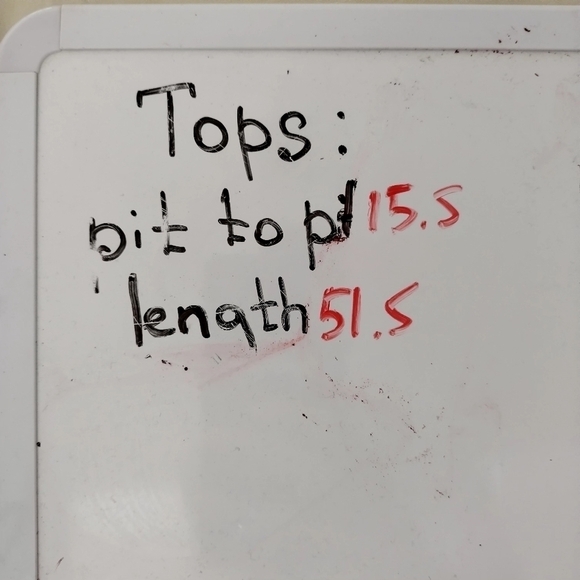 Tops:
pit to pit 15.5
length 51.5